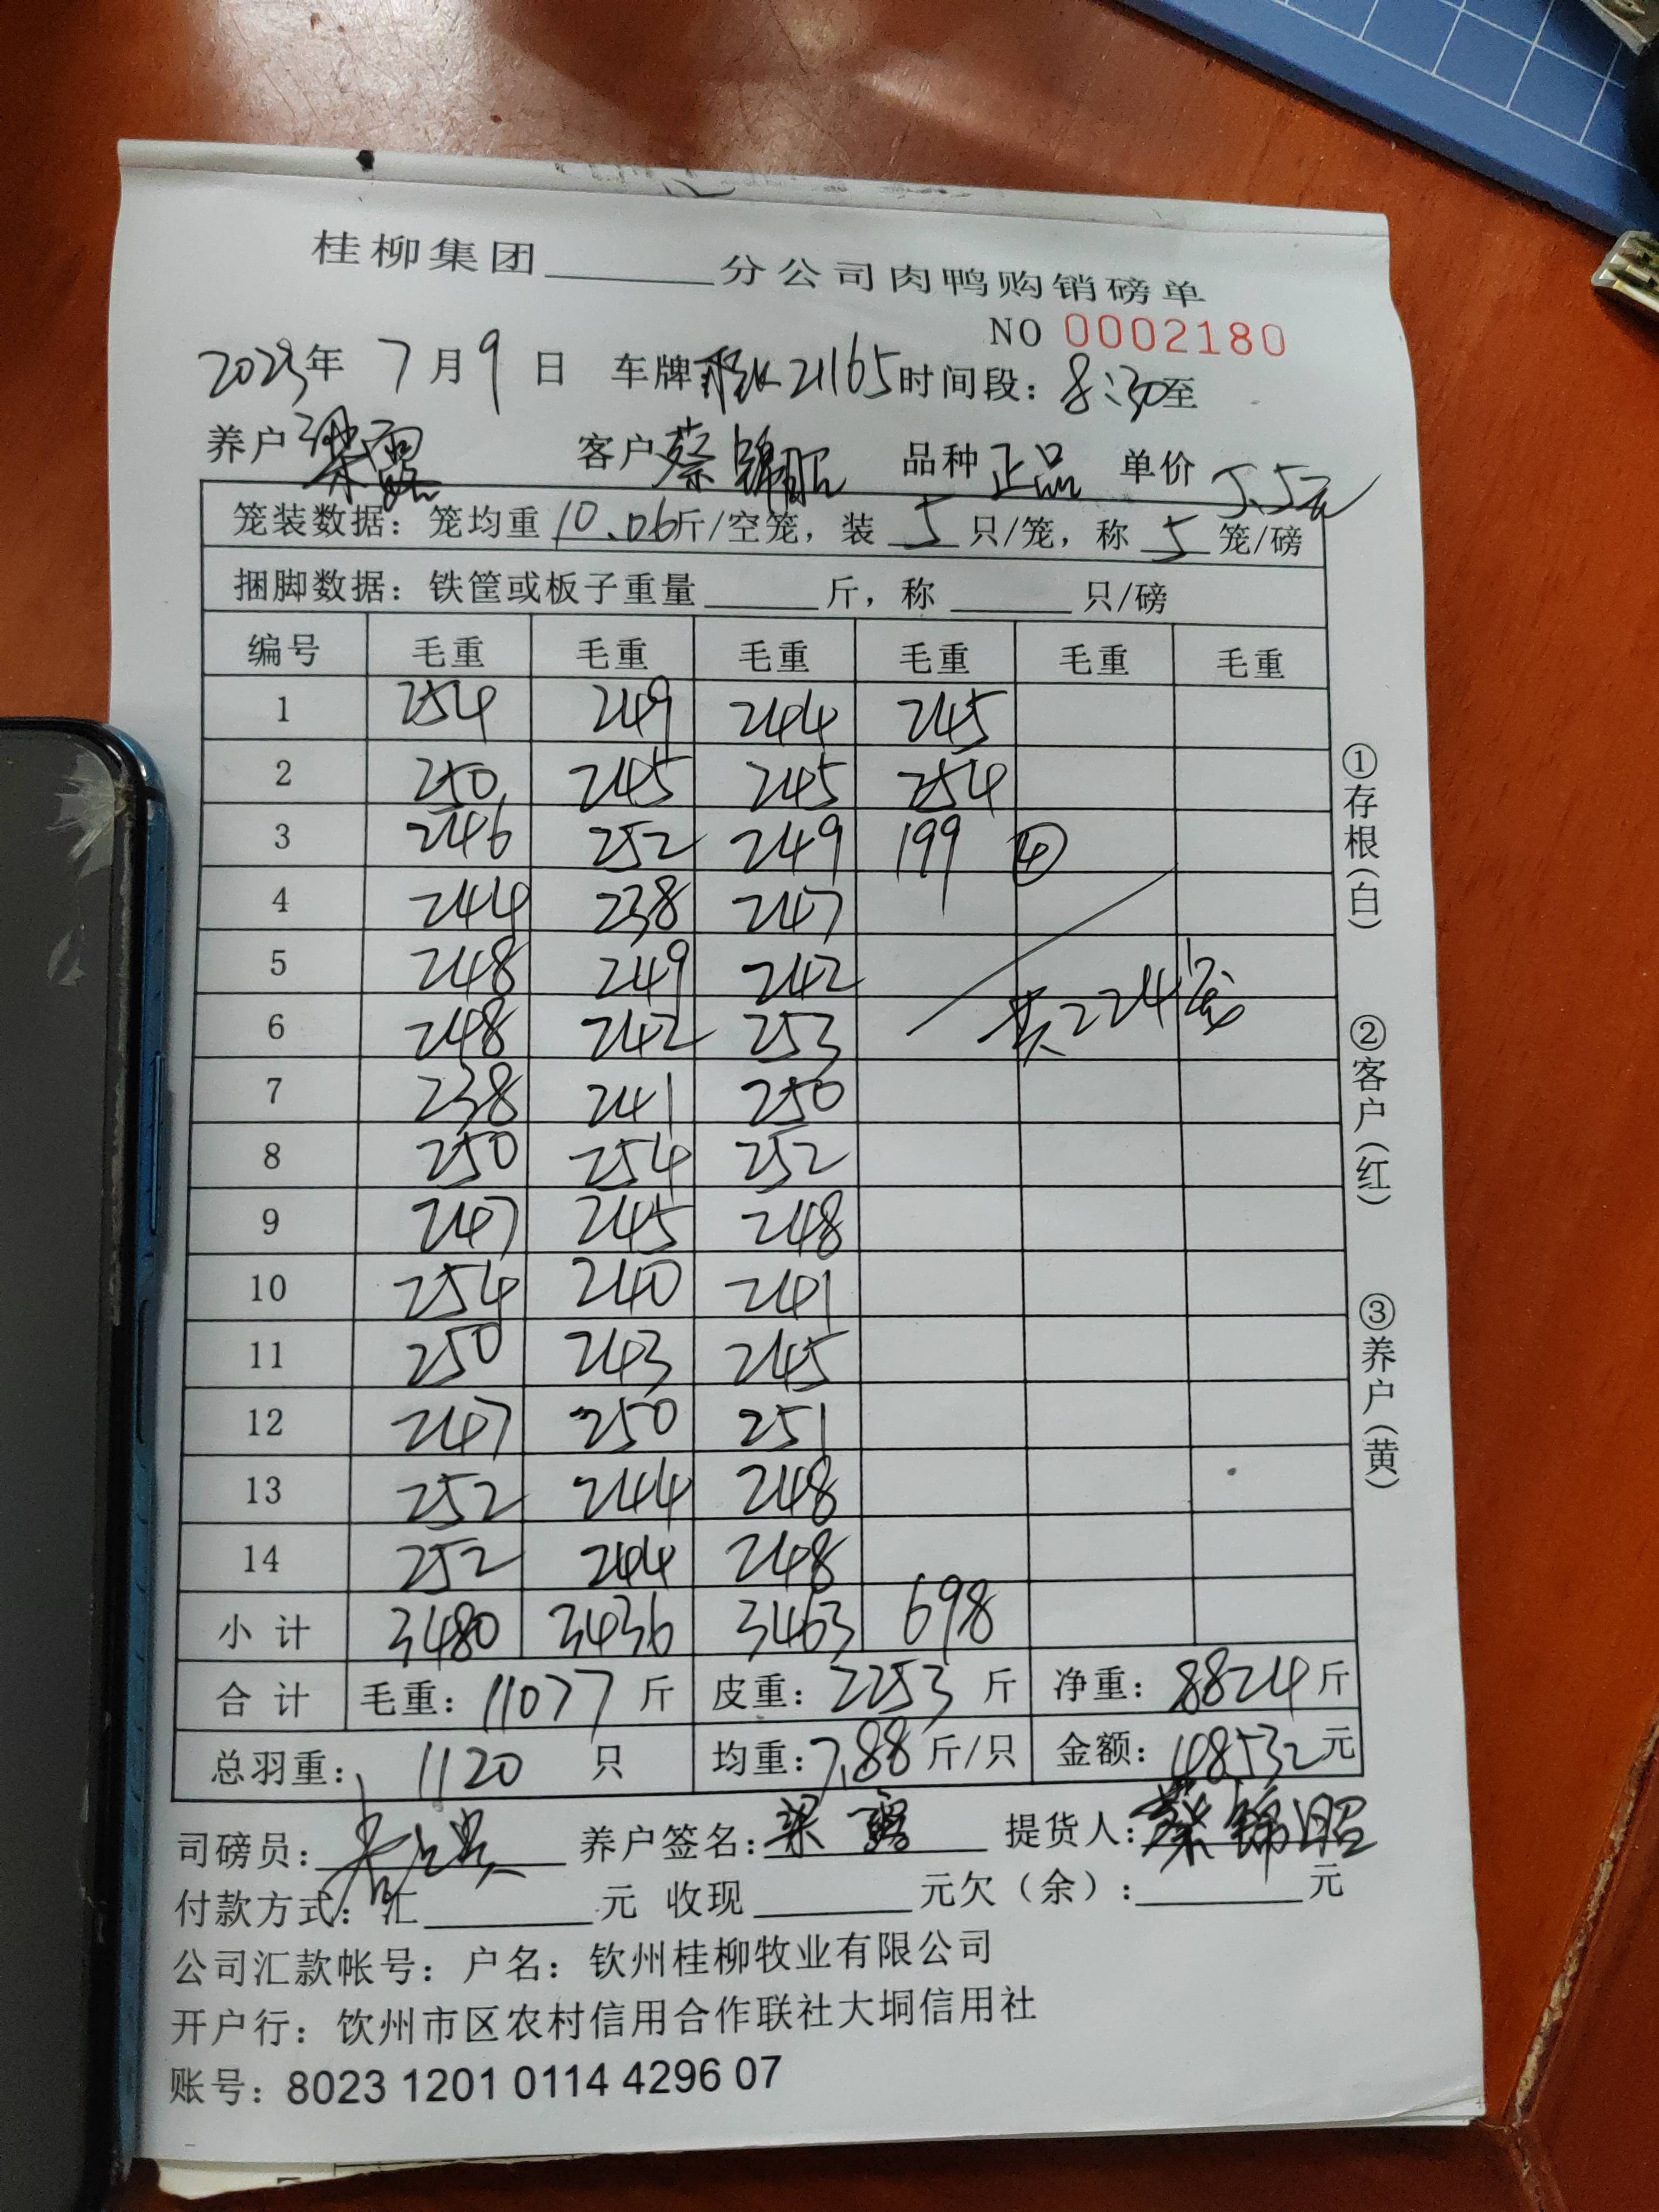 桂柳集团______分公司肉鸭购销磅单
NO 0002180
2023年 7月9日 车牌 21165 时间段：8:30至
养户 梁露 客户 蔡锦昭 品种 正品 单价 5.5元
笼装数据：笼均重 10.06斤/空笼，装 5 只/笼，称 5 笼/磅
捆脚数据：铁筐或板子重量______斤，称______只/磅
编号 毛重 毛重 毛重 毛重 毛重 毛重
1 254 249 244 245
2 250 245 245 254
3 246 252 249 199 ④
4 244 238 247
5 248 249 242
6 248 242 253 共224笼
7 238 241 250
8 250 254 252
9 247 245 248
10 254 240 241
11 250 243 245
12 247 250 251
13 252 244 248
14 252 244 248
小计 3480 3436 3463 698
合计 毛重：11077 斤 皮重：2253 斤 净重：8824斤
总羽重：1120 只 均重：7.88 斤/只 金额：48532元
司磅员： 养户签名：梁露 提货人：蔡锦昭
付款方式：汇______元 收现______元欠（余）：______元
公司汇款帐号：户名：钦州桂柳牧业有限公司
开户行：钦州市区农村信用合作联社大垌信用社
账号：8023 1201 0114 4296 07
①存根（白）
②客户（红）
③养户（黄）